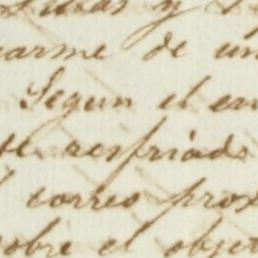 y
carme de un
Segun el en
resfriado
correo prox
sobre el objet